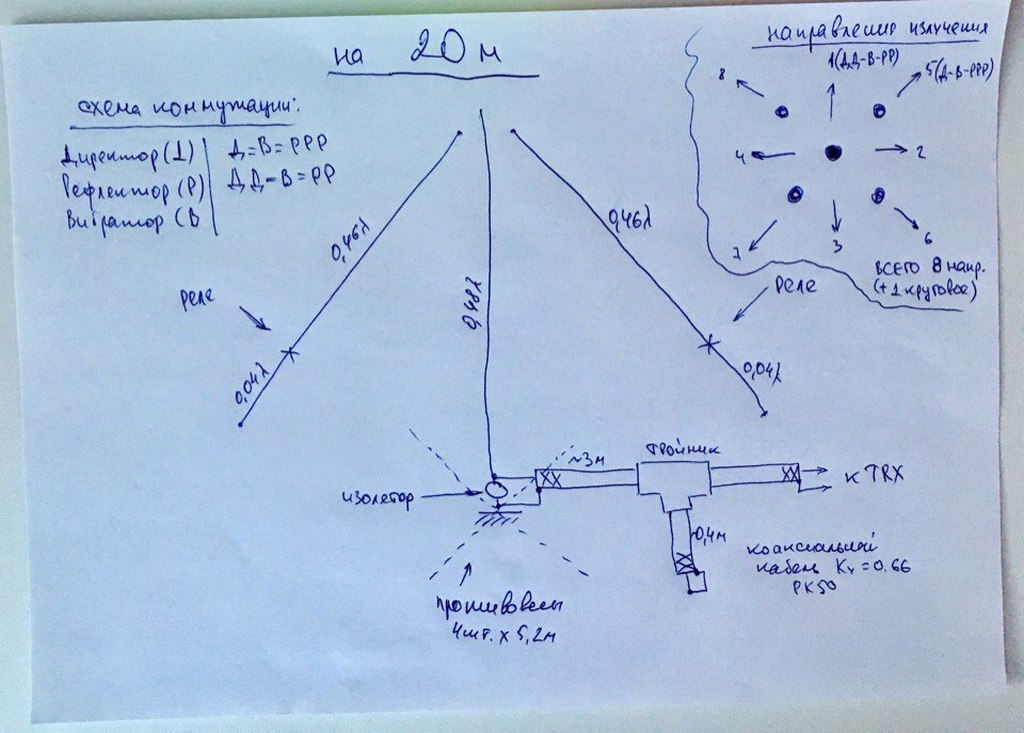 на 20 м
направление излучения
1(ДД-В-РР)
5(Д-В-РРР)
8
4
2
7
3
6
ВСЕГО 8 напр.
(+1 круговое)
схема коммутации:
Директор (Д)
Рефлектор (Р)
Вибратор (В
Д=В=РРР
ДД-В=РР
0,46λ
0,48λ
0,46λ
реле
реле
0,04λ
0,04λ
изолятор
~3м
тройник
к TRX
~0,4м
коаксиальный
кабель Кү=0.66
РК50
противовесы
4шт. х 5,2м